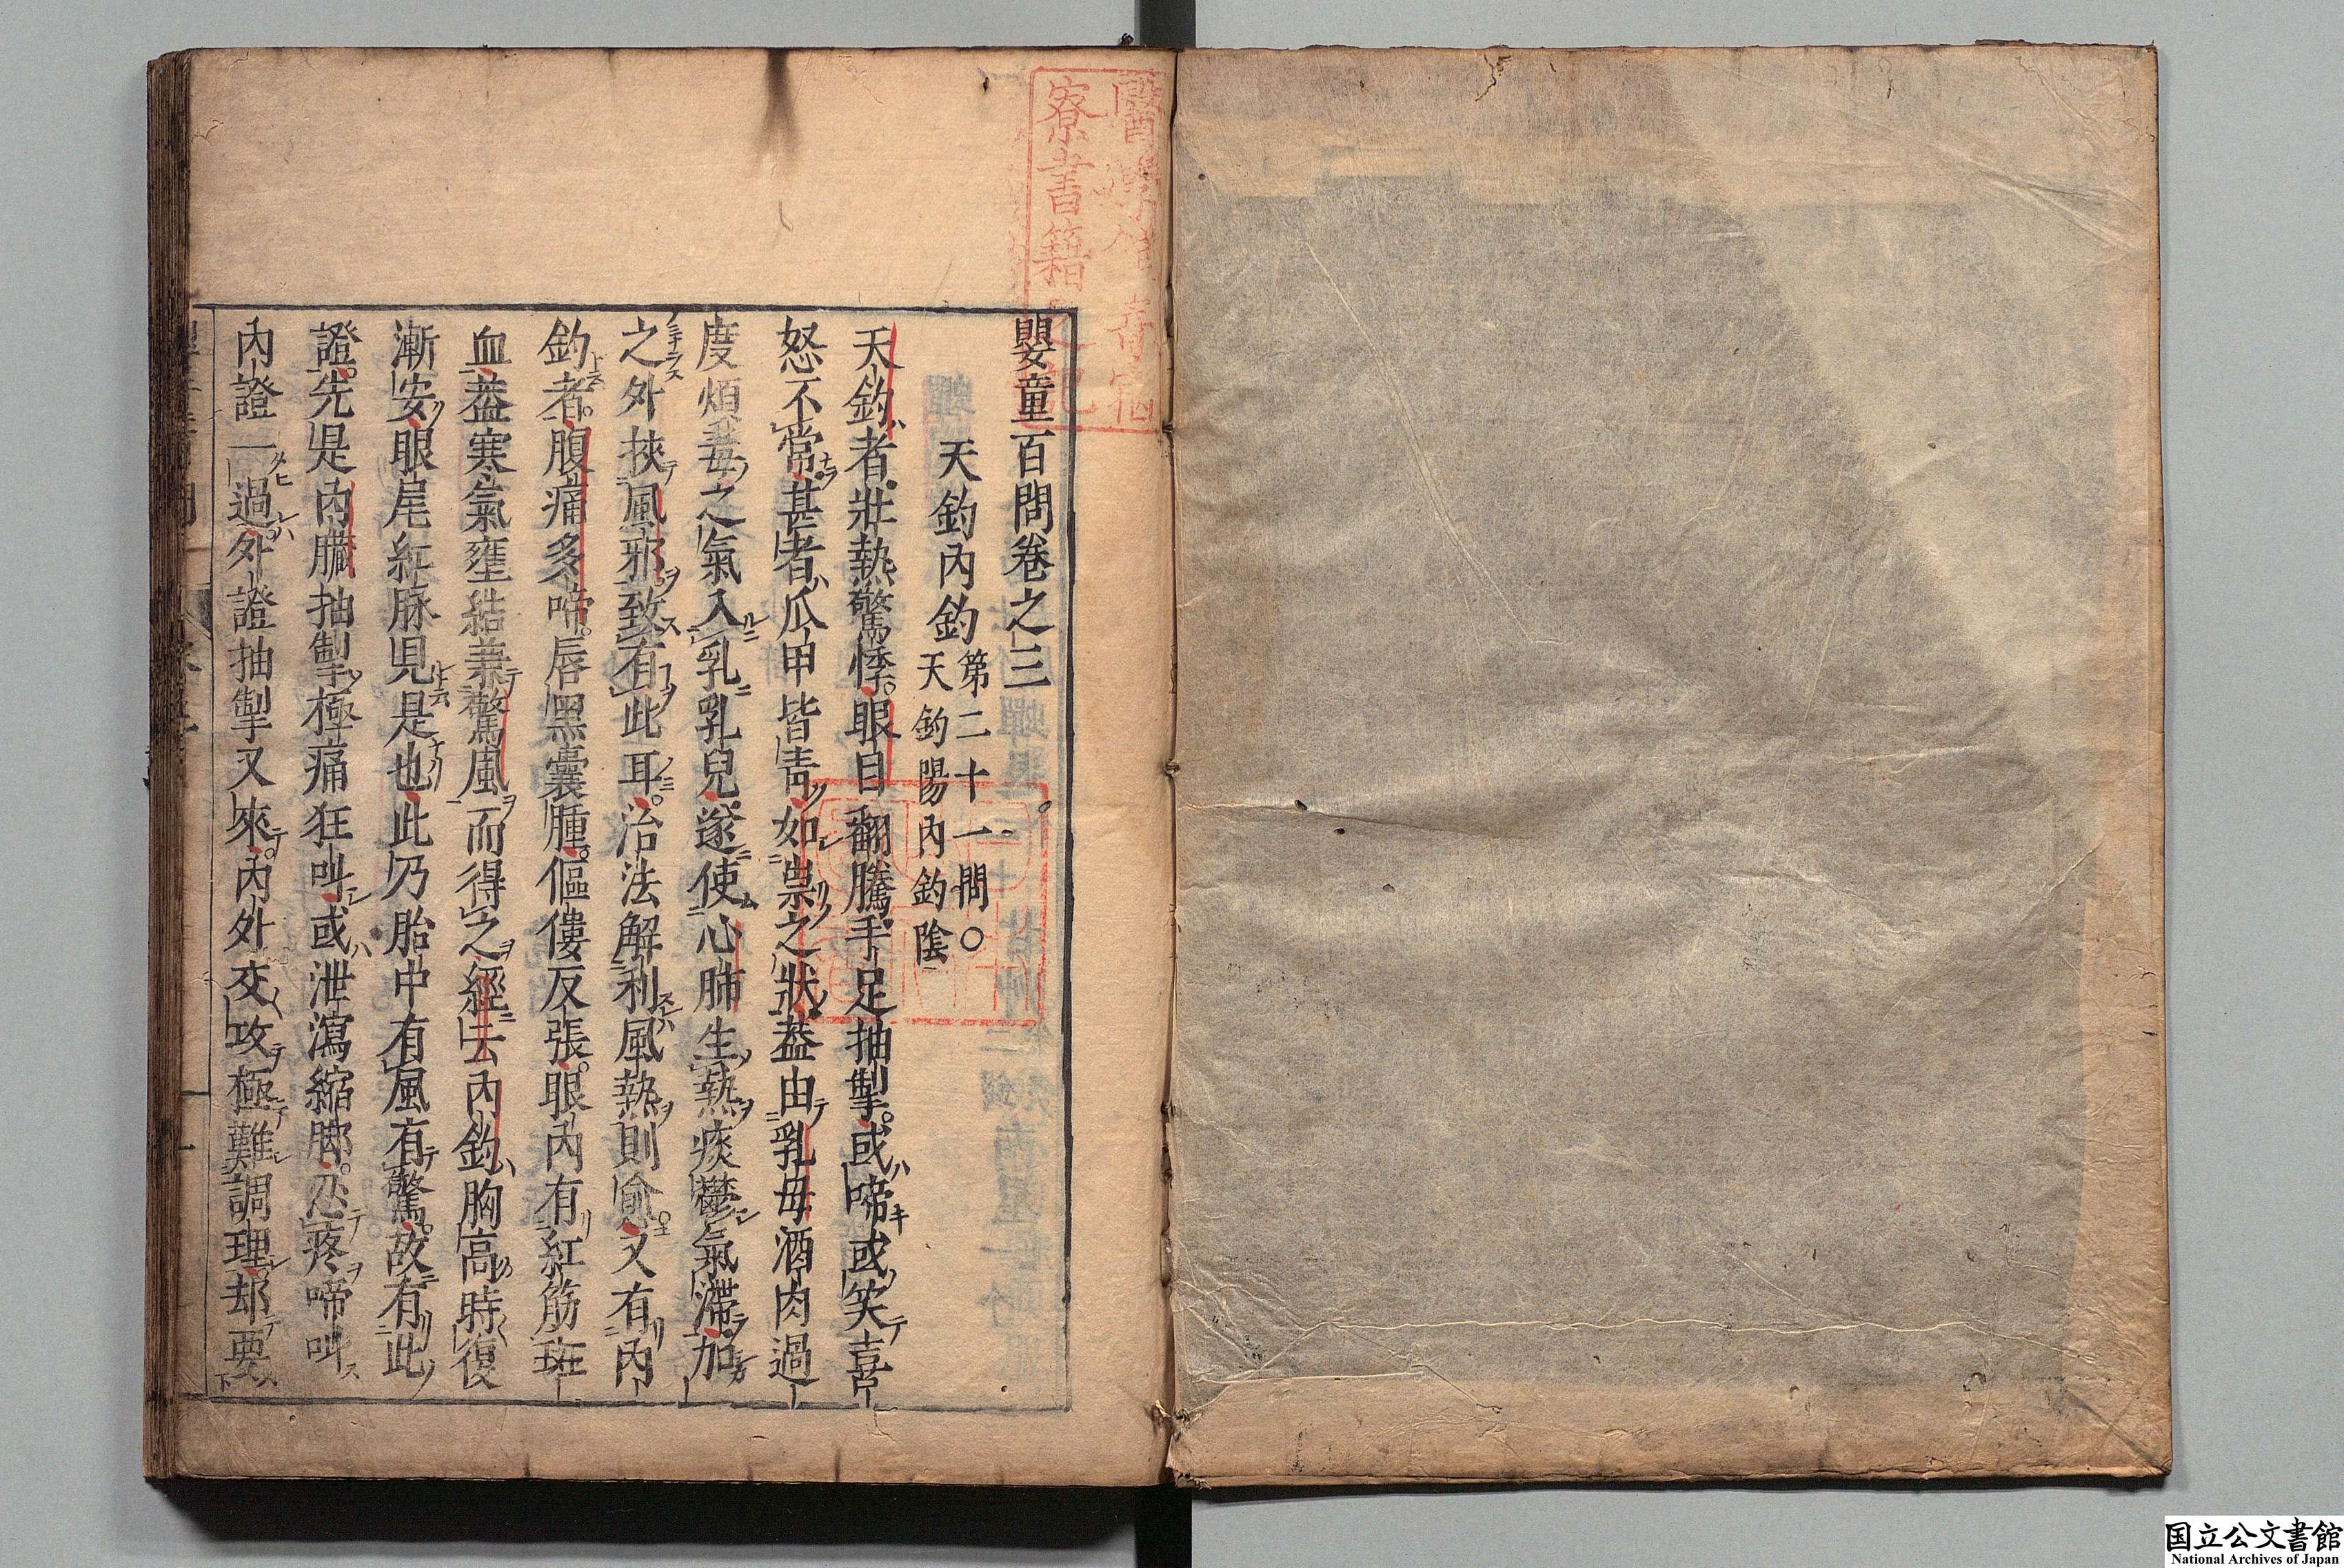 嬰童百問卷之三
天釣內釣 第二十一問○
天釣陽內釣陰
天釣者壯熱驚悸眼目翻騰手足抽掣或啼或笑喜
怒不常甚者爪甲皆青如祟之狀蓋由乳母酒肉過
度煩毒之氣入乳乳兒遂使心肺生熱痰鬱氣滯加
之外挾風邪致有此耳治法解利風熱則愈又有內
釣者腹痛多啼唇黑囊腫傴僂反張眼內有紅筋斑
血蓋寒氣壅結兼驚風而得之經云內釣胸高時復
漸安眼尾紅脉見是也此乃胎中有風有驚故有此
證先是內臟抽掣極痛狂叫或泄瀉縮脚忍疼啼叫
內證一過外證抽掣又來內外交攻極難調理却要
寮書籍之記
国立公文書館
National Archives of Japan